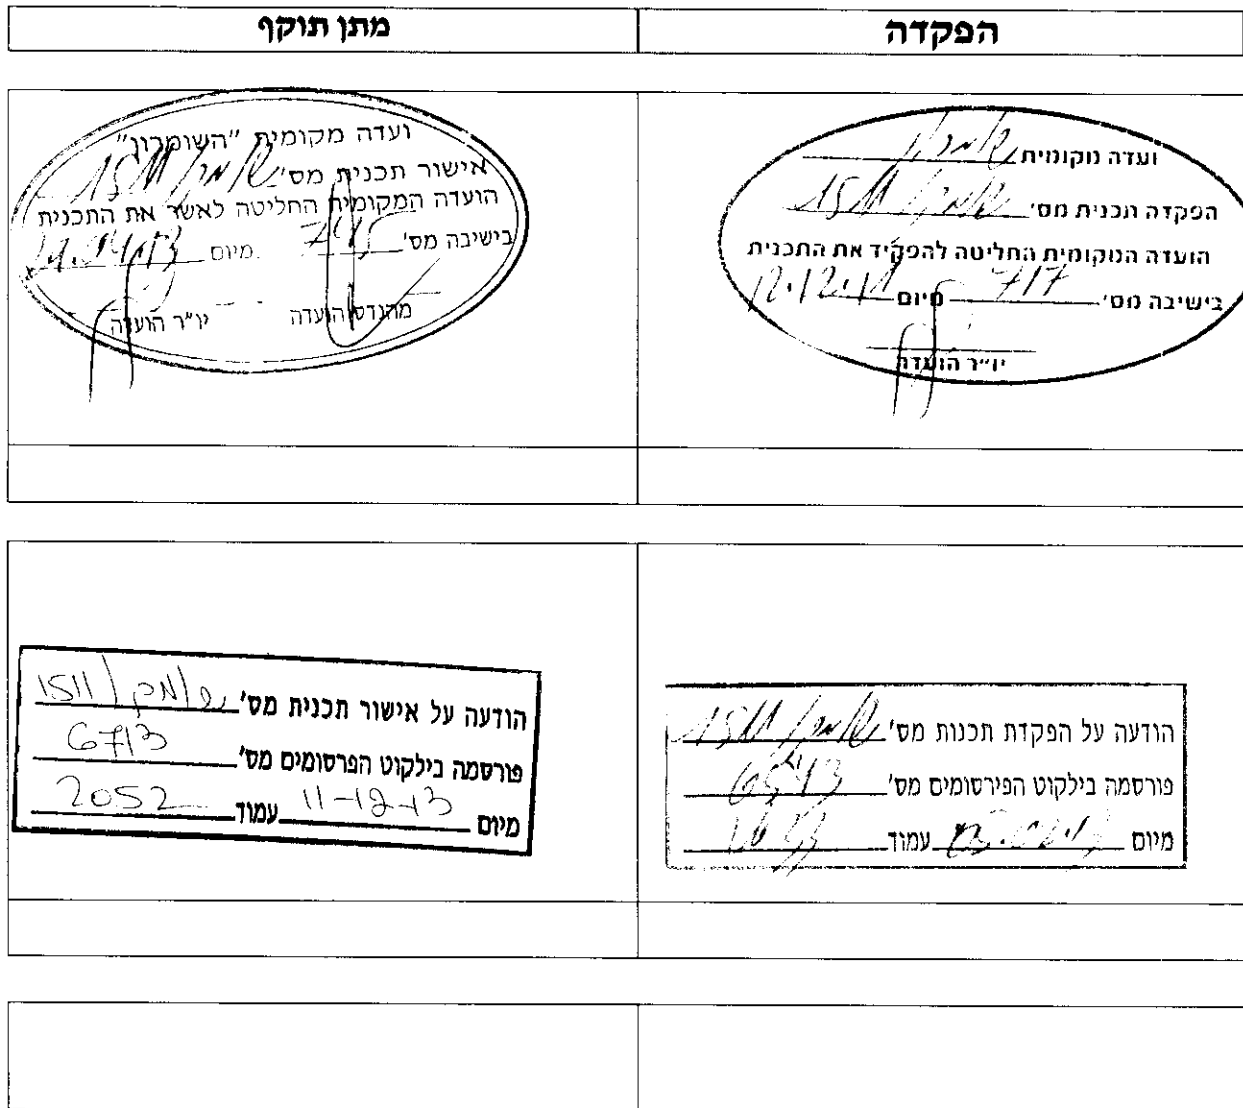 הפקדה
מתן תוקף
ועדה מקומית
הפקדה תכנית מס' ש/מק/1511
הועדה המקומית החליטה להפקיד את התכנית
בישיבה מס' 717 מיום 12.12.11
יו"ר הועדה
ועדה מקומית "השומרון"
אישור תכנית מס' ש/מק/1511
הועדה המקומית החליטה לאשר את התכנית
בישיבה מס' מיום
מהנדס הועדה יו"ר הועדה
הודעה על הפקדת תכנות מס' ש/מק/1511
פורסמה בילקוט הפירסומים מס'
מיום עמוד
הודעה על אישור תכנית מס' ש/מק/1511
פורסמה בילקוט הפרסומים מס' 6713
מיום 11-12-13 עמוד 2052